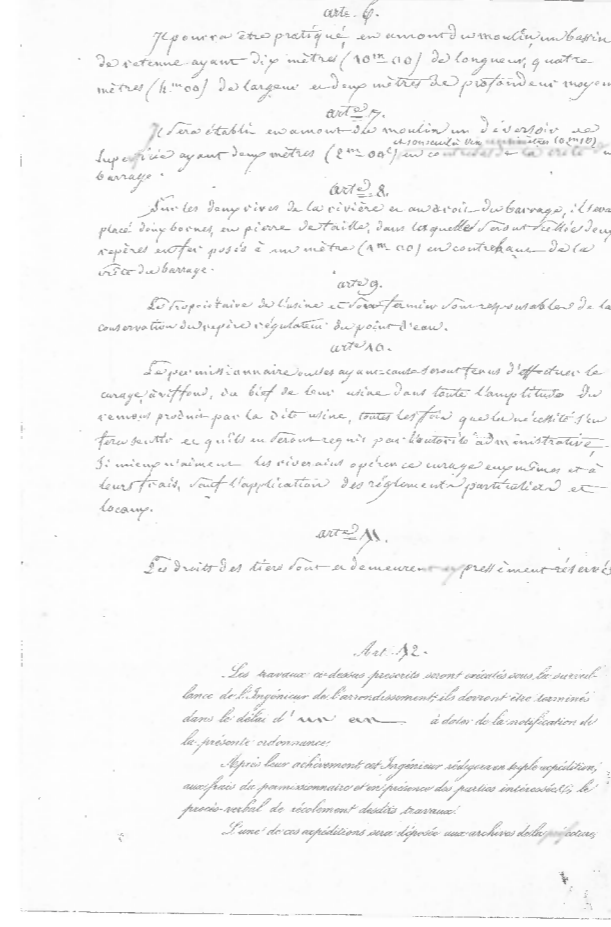 arte. 6.
Il pourra être pratiqué, en amont du moulin, un bassin
de retenue ayant dix mètres (10m 00) de longueur, quatre
mètres (4.m 00) de largeur et deux mètres de profondeur moyen
arte 7.
Il sera établi en amont du moulin un déversoir de
superficie ayant deux mètres (2m 00c) en
barrage.
arte 8.
Sur les deux rives de la rivière et au droit du barrage, il sera
placé deux bornes, en pierre de taille, dans laquelle seront deux
repères en fer posés à un mètre (1m 00) en contrehaut de la
crête du barrage.
arte 9.
Le Propriétaire de l'usine et son fermier sont responsables de la
conservation du repère régulateur du point d'eau.
arte 10.
Le permissionnaire ou ses ayans-cause seront tenus d'effectuer le
curage, à vif fond, du bief de leur usine dans toute l'amplitude du
remous produit par la dite usine, toutes les fois que la nécessité s'en
fera sentir et qu'ils en seront requis par l'autorité administrative,
Si mieux n'aiment les riverains opérer ce curage eux mêmes et à
leurs frais, sauf l'application des réglements particuliers et
locaux.
arte 11.
Les droits des tiers sont et demeurent expressément réservés
Art. 12.
Les travaux ci-dessus prescrits seront exécutés sous la surveil-
lance de l'Ingénieur de l'arrondissement; ils devront être terminés
dans le délai d'un an à dater de la notification de
la présente ordonnance.
Après leur achèvement cet Ingénieur rédigera en triple expédition,
aux frais du permissionnaire et en présence des parties intéressées, le
procès-verbal de récolement desdits travaux.
L'une de ces expéditions sera déposée aux archives de la préfecture,